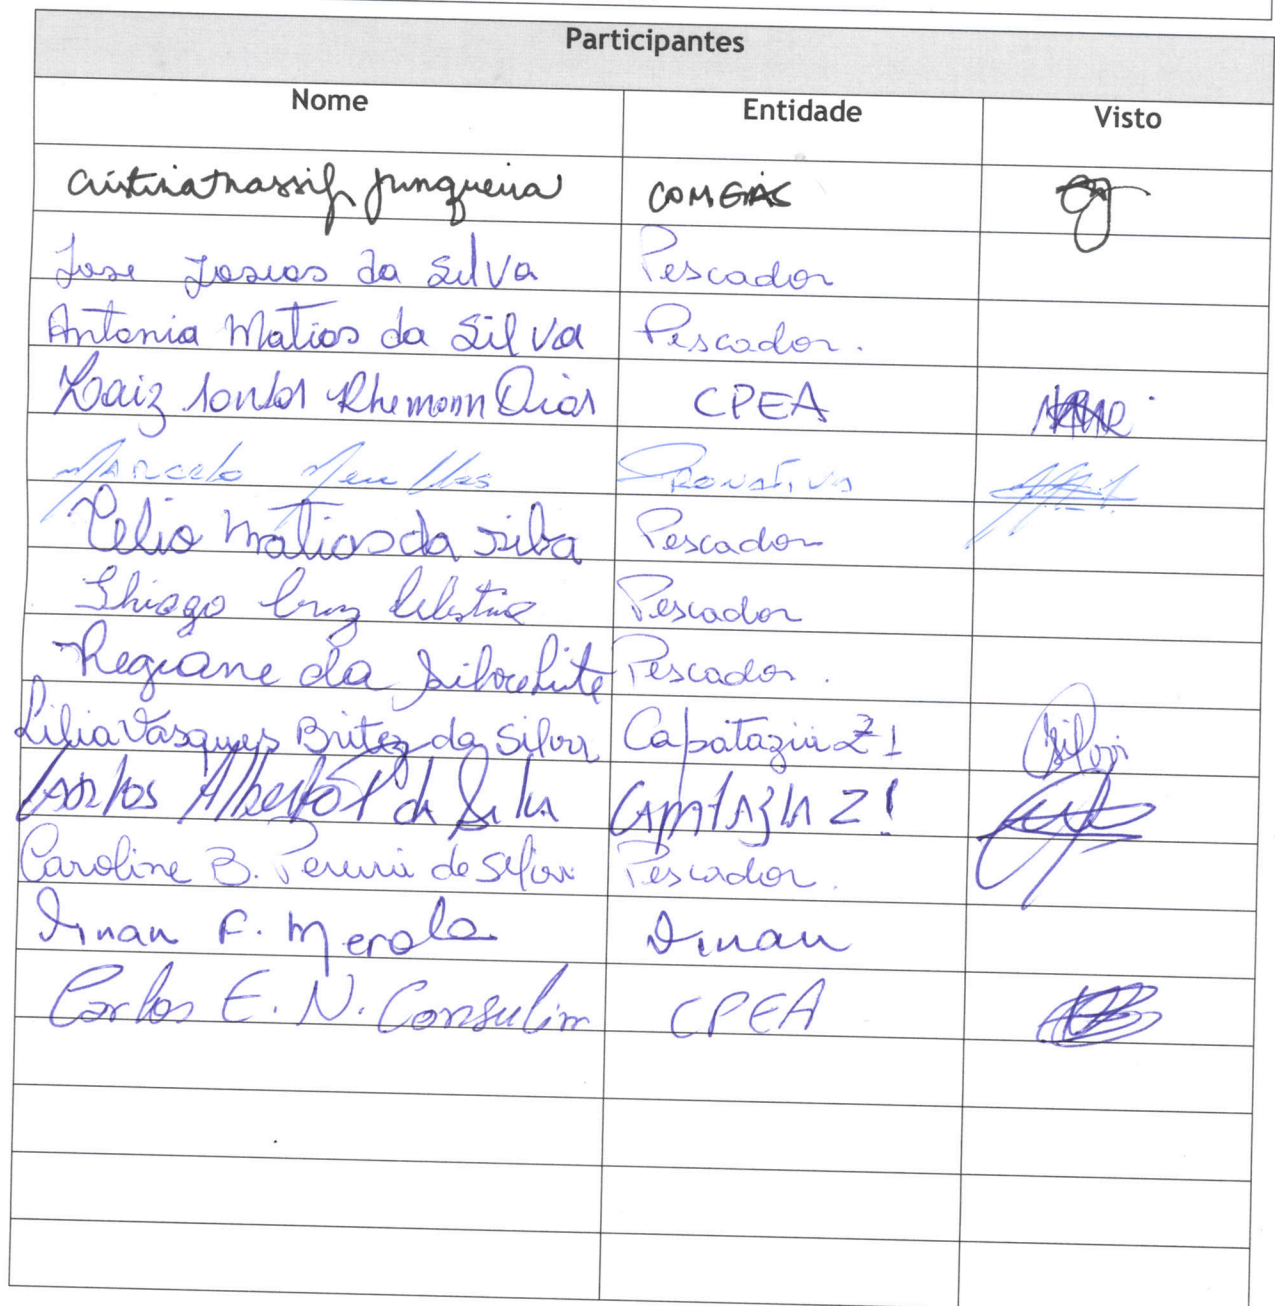 Participantes
Nome Entidade Visto
Cristina Nassif Junqueira COMGÁS
Jose Josias da Silva Pescador
Antonia Matias da Silva Pescador.
Laiz Santos Rhemann Dias CPEA
Marcelo
Celio Matias da Silva Pescador
Thiago Cruz Celestino Pescador
Regiane da Silva Leite Pescador.
Lilia Vasques Britez da Silva Capatazia Z1 Silva
Carlos Alberto P da Silva Capatazia Z1
Caroline B. Pereira de Silva Pescador.
F. Merola
Carlos E. N. Consulim CPEA